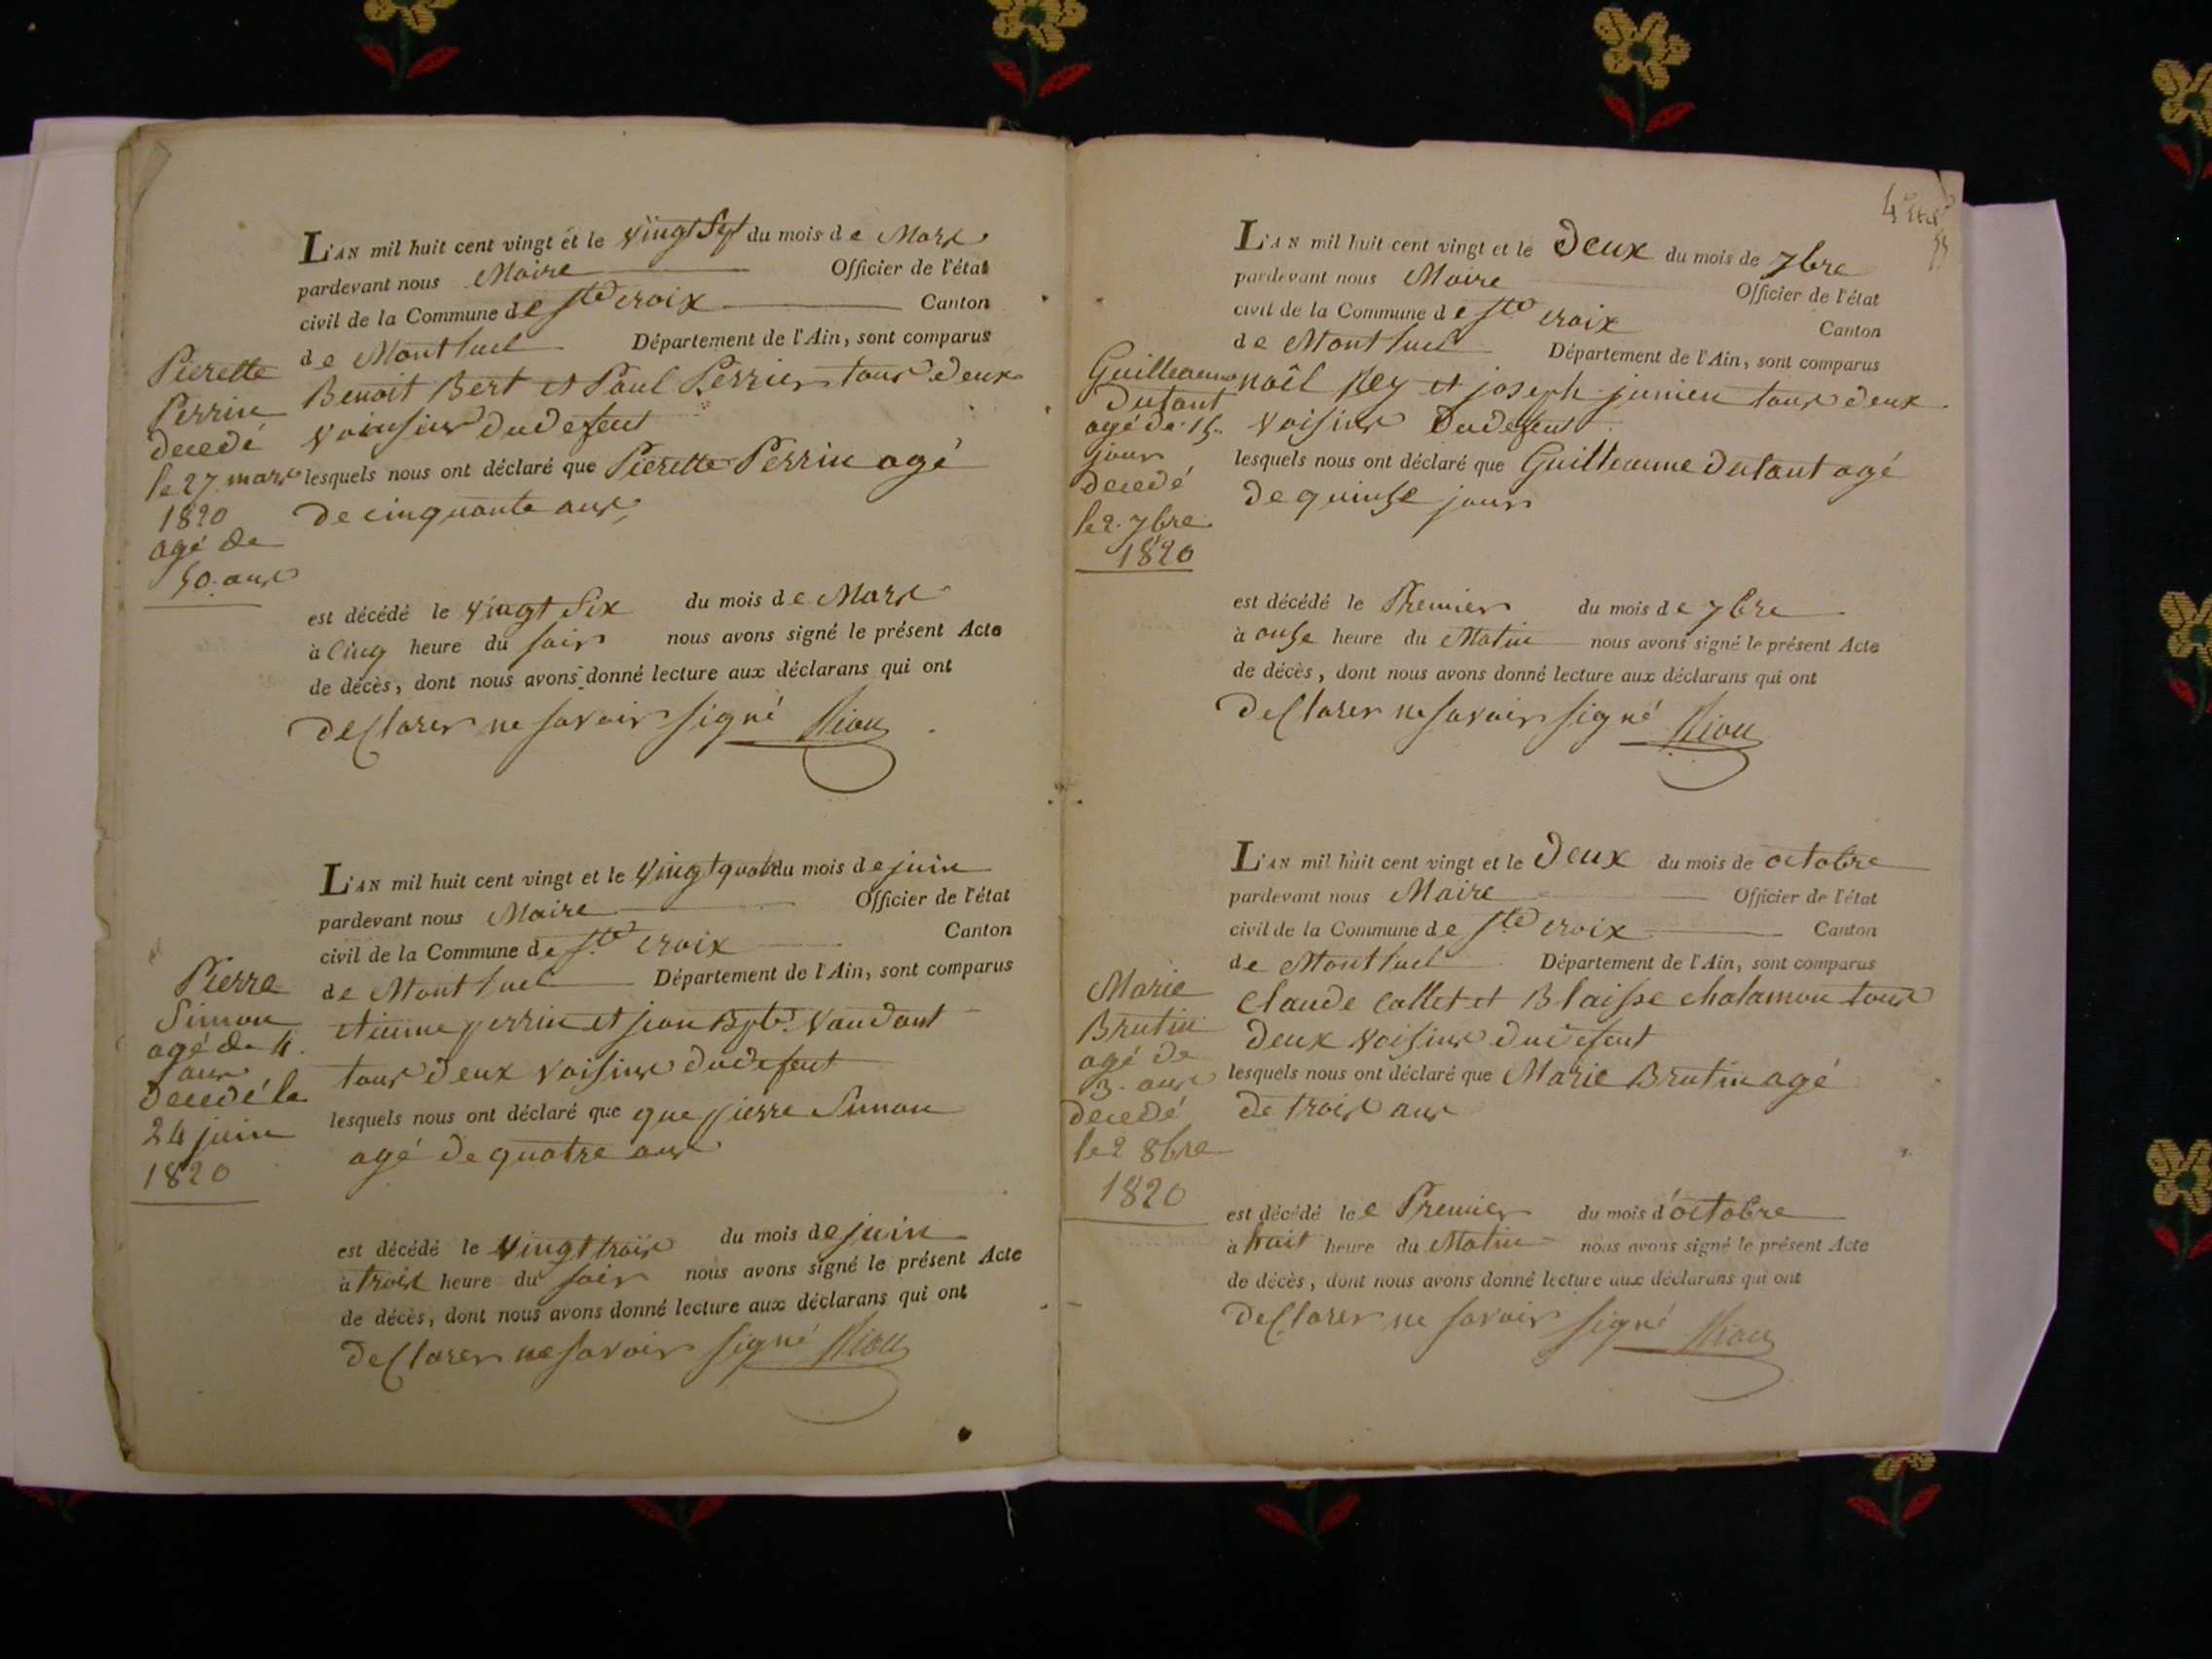 L'AN mil huit cent vingt et le vingt Sept du mois de Mars
pardevant nous Maire Officier de l'état
civil de la Commune de Ste croix Canton
de Montluel Département de l'Ain, sont comparus
Benoit Bert et Paul Perrier tous deux
voinsins du defeut
lesquels nous ont déclaré que Pierette Perrin agé
de cinquante ans
Pierette
Perrin
decedé
le 27 mars
1820
agé de
50. ans
est décédé le vingt Six du mois de Mars
à Cinq heure du soir nous avons signé le présent Acte
de décès, dont nous avons donné lecture aux déclarans qui ont
declarer ne savoir signé
L'AN mil huit cent vingt et le vingt quatre du mois de juin
pardevant nous Maire Officier de l'état
civil de la Commune de Ste croix Canton
de Montluel Département de l'Ain, sont comparus
etienne perrin et jean Bpte. Vaudant
tous deux voisins du defeut
lesquels nous ont déclaré que que pierre Simon
agé de quatre ans
Pierre
Simon
agé de 4.
ans
decedé le
24 juin
1820
est décédé le vingt trois du mois de juin
à trois heure du soir nous avons signé le présent Acte
de décès, dont nous avons donné lecture aux déclarans qui ont
declarer ne savoir signé
L'AN mil huit cent vingt et le Deux du mois de 7bre
pardevant nous Maire Officier de l'état
civil de la Commune de Ste croix Canton
de Montluel Département de l'Ain, sont comparus
noêl Rey et joseph junien tous deux
voisins du defeut
lesquels nous ont déclaré que Guilleaume Dutant agé
de quinse jours
Guilleaume
Dutant
agé de 15.
jours
decedé
le 2. 7bre
1820
est décédé le Premier du mois de 7bre
à onse heure du Matin nous avons signé le présent Acte
de décès, dont nous avons donné lecture aux déclarans qui ont
declarer ne savoir signé
L'AN mil huit cent vingt et le Deux du mois de octobre
pardevant nous Maire Officier de l'état
civil de la Commune de Ste croix Canton
de Montluel Département de l'Ain, sont comparus
Claude Collet et Blaisse chalamon tous
deux voisins du defeut
lesquels nous ont déclaré que Marie Brutin agé
de trois ans
Marie
Brutin
agé de
3. ans
decedé
le 2 8bre
1820
est décédé le e Premier du mois d'octobre
à huit heure du Matin nous avons signé le présent Acte
de décès, dont nous avons donné lecture aux déclarans qui ont
declarer ne savoir signé